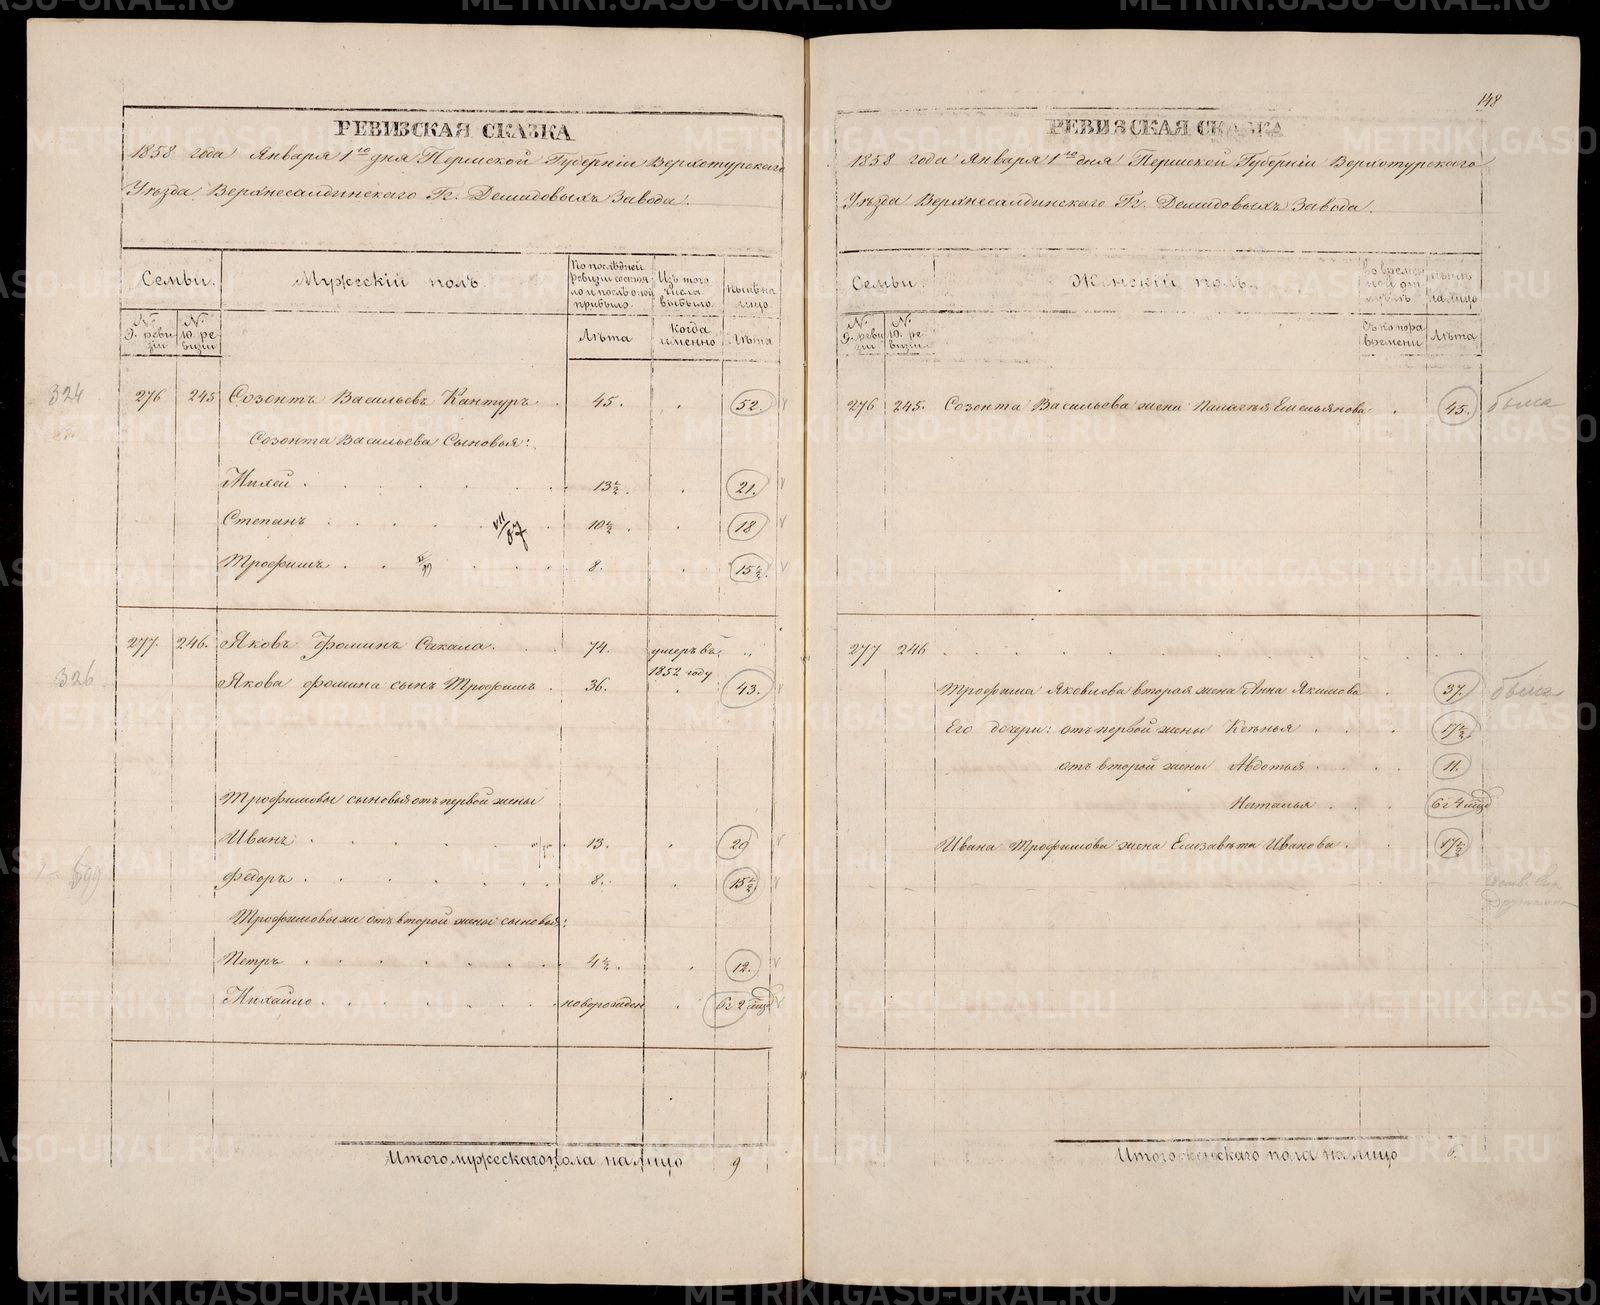 148
РЕВИЗСКАЯ СКАЗКА
1858 года Января 1го дня Пермской Губерніи Верхотурскаго
Уѣзда Верхнесалдинскаго Гг. Демидовыхъ Завода.
Семьи.
Мужескій полъ
По послѣдней ревизіи состояло и послѣ оной прибыло.
Изъ того числа выбыло.
Нынѣ на лицо
№ 9. ревизіи
№ 10. ревизіи
Лѣта
Когда именно
Лѣта
324
276 245 Созонтъ Васильевъ Кантуръ 45. 52.
Созонта Васильева Сыновья:
Михей 13½. 21.
Степанъ VII/87 10½. 18
Трофимъ 8. 15½.
277. 246. Яковъ Фоминъ Сакала. 74. умеръ въ 1852 году
326
Якова Фомина сынъ Трофимъ 36. 43.
Трофимовы сыновья отъ первой жены
Иванъ 13. 20
Федоръ 8. 15½
Трофимовы же отъ второй жены сыновья:
Петръ 4½. 12.
Михайло новорожден 6 г 2 мѣс
Итого мужескаго пола на лицо 9
РЕВИЗСКАЯ СКАЗКА
1858 года Января 1го дня Пермской Губерніи Верхотурскаго
Уѣзда Верхнесалдинскаго Гг. Демидовыхъ Завода.
Семьи
Женскій полъ.
Во временной отлучкѣ
Нынѣ на лицо
№ 9. ревизіи
№ 10. ревизіи
Съ котора времени
Лѣта
276 245. Созонта Васильева жена Палагѣя Емельянова 45.
277 246
Трофима Яковлева вторая жена Анна Якимова 37.
Его дочери: отъ первой жены Ксѣнья 17½
отъ второй жены Авдотья 11.
Наталья 6 г 4 мѣс
Ивана Трофимова жена Елизавѣта Иванова 17½
Итого женскаго пола на лицо 6.
METRIKI.GASO-URAL.RU